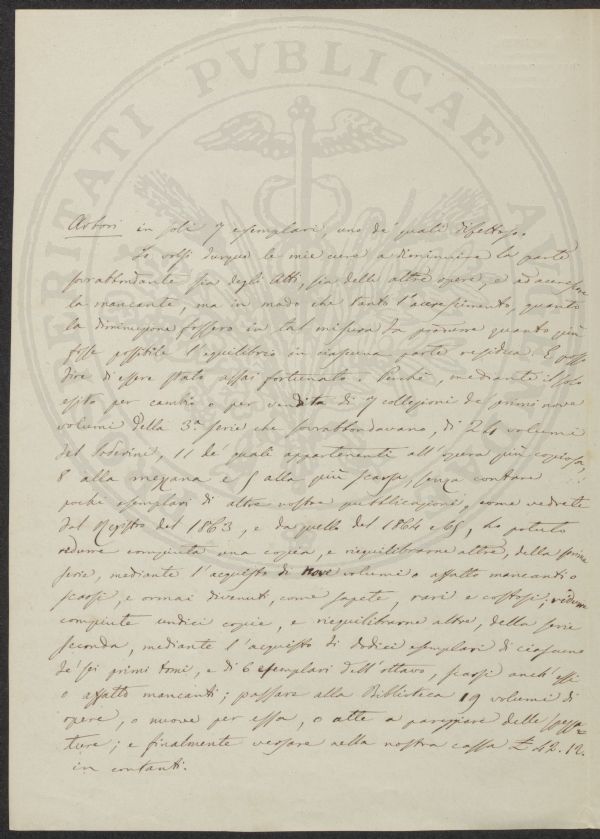 PROSPERITATI PVBLICAE AVGENDAE
Arbori in soli 7 esemplari, uno de' quali difettoso.
Io volsi dunque le mie cure a diminuire la parte
sovrabbondante sia degli Atti, sia delle altre opere, e ad accrescere
la mancante, ma in modo che tanto l'accrescimento, quanto
la diminuzione fossero in tal misura da produrre quanto più
fosse possibile l'equilibrio in ciascuna parte residua. E posso
dire di essere stato assai fortunato. Perchè, mediante il solo
esito per cambio o per vendita di 7 collezioni de' primi nove
volumi della 3.a serie che sovrabbondavano, di 24 volumi
del Soderini, 11 de' quali appartenenti all'opera più copiosa,
8 alla mezzana e 5 alla più scarsa, senza contare
pochi esemplari di altre nostre pubblicazioni, come vedrete
dal Registro del 1863, e da quello del 1864 e 65, ho potuto
ridurre compiuta una copia, e riequilibrarne altre, della prima
serie, mediante l'acquisto di nove volumi o affatto mancanti o
scarsi, e ormai divenuti, come sapete, rari e costosi; ridurre
compiute undici copie, e riequilibrarne altre, della serie
seconda, mediante l'acquisto di dodici esemplari di ciascuno
de' sei primi tomi, e di 6 esemplari dell'ottavo, scarsi anch'essi
o affatto mancanti; passare alla Biblioteca 19 volumi di
opere, o nuove per essa, o atte a pareggiare delle spezza=
ture; e finalmente versare nella nostra cassa £ 42.12.
in contanti.